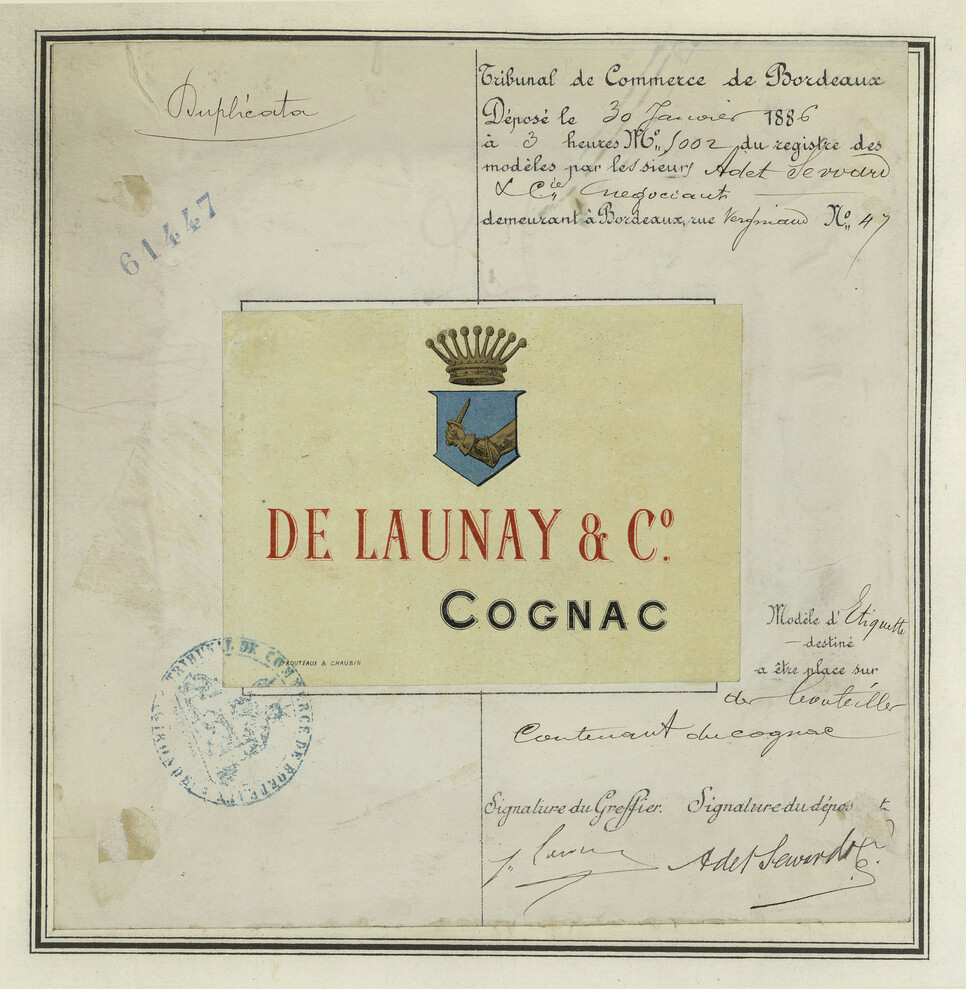 Duplicata
61447
Tribunal de Commerce de Bordeaux
Déposé le 30 Janvier 1886
à 3 heures No. 5002 du registre des
modèles par les sieurs Adet Seward
& Cie négociants
demeurant à Bordeaux, rue Vergniaud No. 47
DE LAUNAY & Co.
COGNAC
BOUTEAUX & CHAUBIN
TRIBUNAL DE COMMERCE DE BORDEAUX
Modèle d'Etiquette
destiné
a être place sur
des bouteilles
Contenant du cognac
Signature du Greffier. Signature du dépos t
Adet Seward & Co.